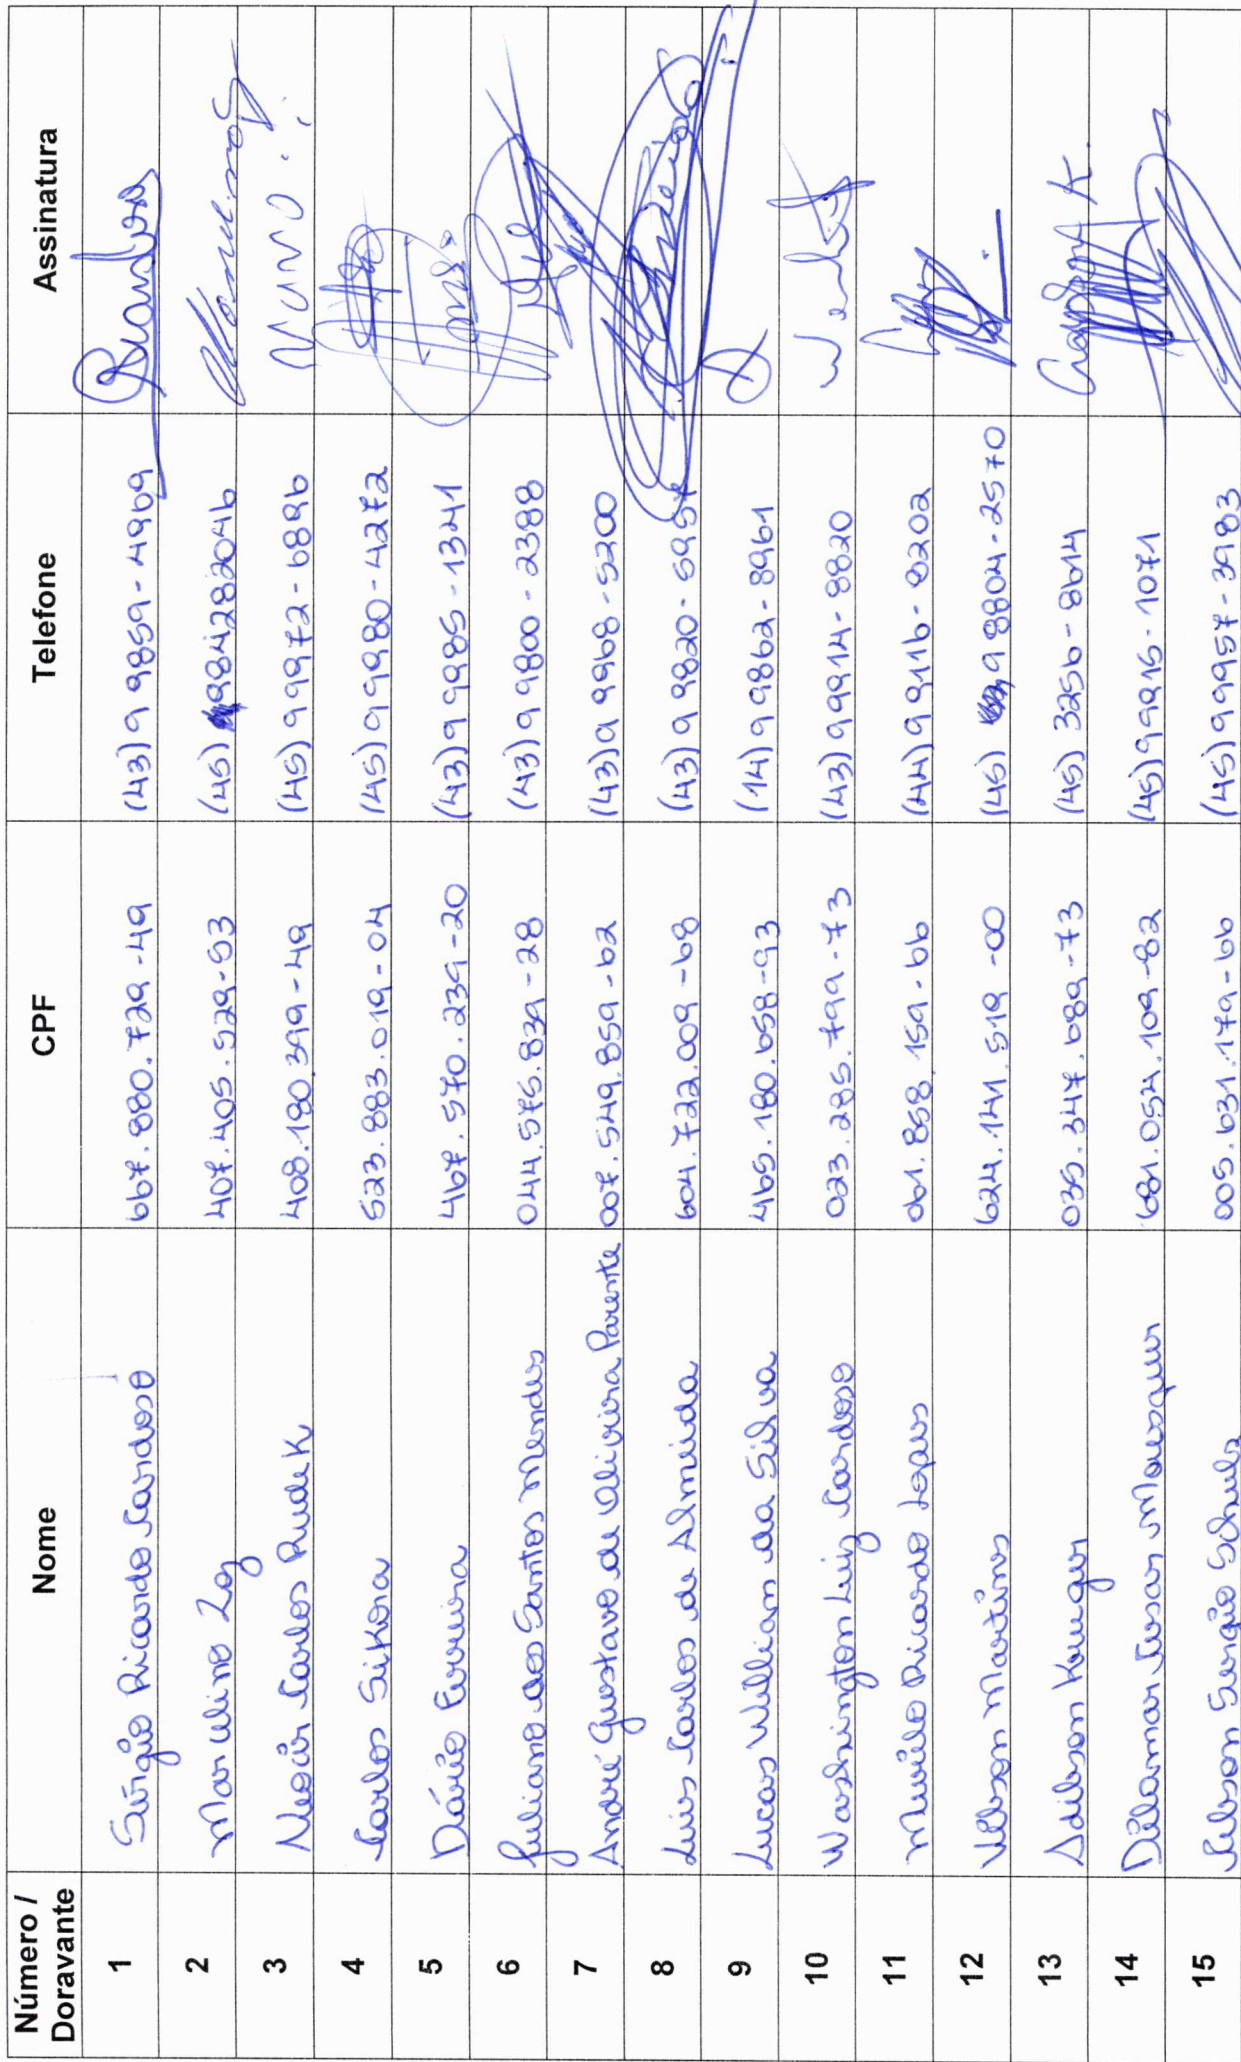 Número / Doravante Nome CPF Telefone Assinatura
1 Sérgio Ricardo Cardoso 667.880.729-49 (43) 9 9859-4969
2 Marcelino Loz 407.405.529-53 (45) 984282046
3 Neoir Carlos Rudek 408.180.399-49 (45) 9 9972-6896
4 Carlos Sikora 523.883.019-04 (45) 9 9980-4272
5 Dário Ferreira 467.570.239-20 (43) 9 9985-1341
6 Juliano dos Santos Mendes 044.575.839-28 (43) 9 9800-2388
7 André Gustavo de Oliveira Parente 007.549.859-62 (43) 9 9968-5200
8 Luis Carlos de Almeida 604.722.009-68 (43) 9 9820-5957
9 Lucas William da Silva 465.180.658-93 (14) 9 9862-8961
10 Washington Luiz Cardoso 023.285.799-73 (43) 9 9914-8820
11 Murilo Ricardo Lopes 061.858.159-66 (44) 9 9116-8202
12 Nelson Martins 624.141.519-00 (45) 9 8804-2570
13 Adilson Kruger 035.347.689-73 (45) 3256-8614
14 Dilamar Cesar 681.054.109-82 (45) 9 9915-1071
15 Sérgio Schulz 005.631.179-66 (45) 9 9957-3983